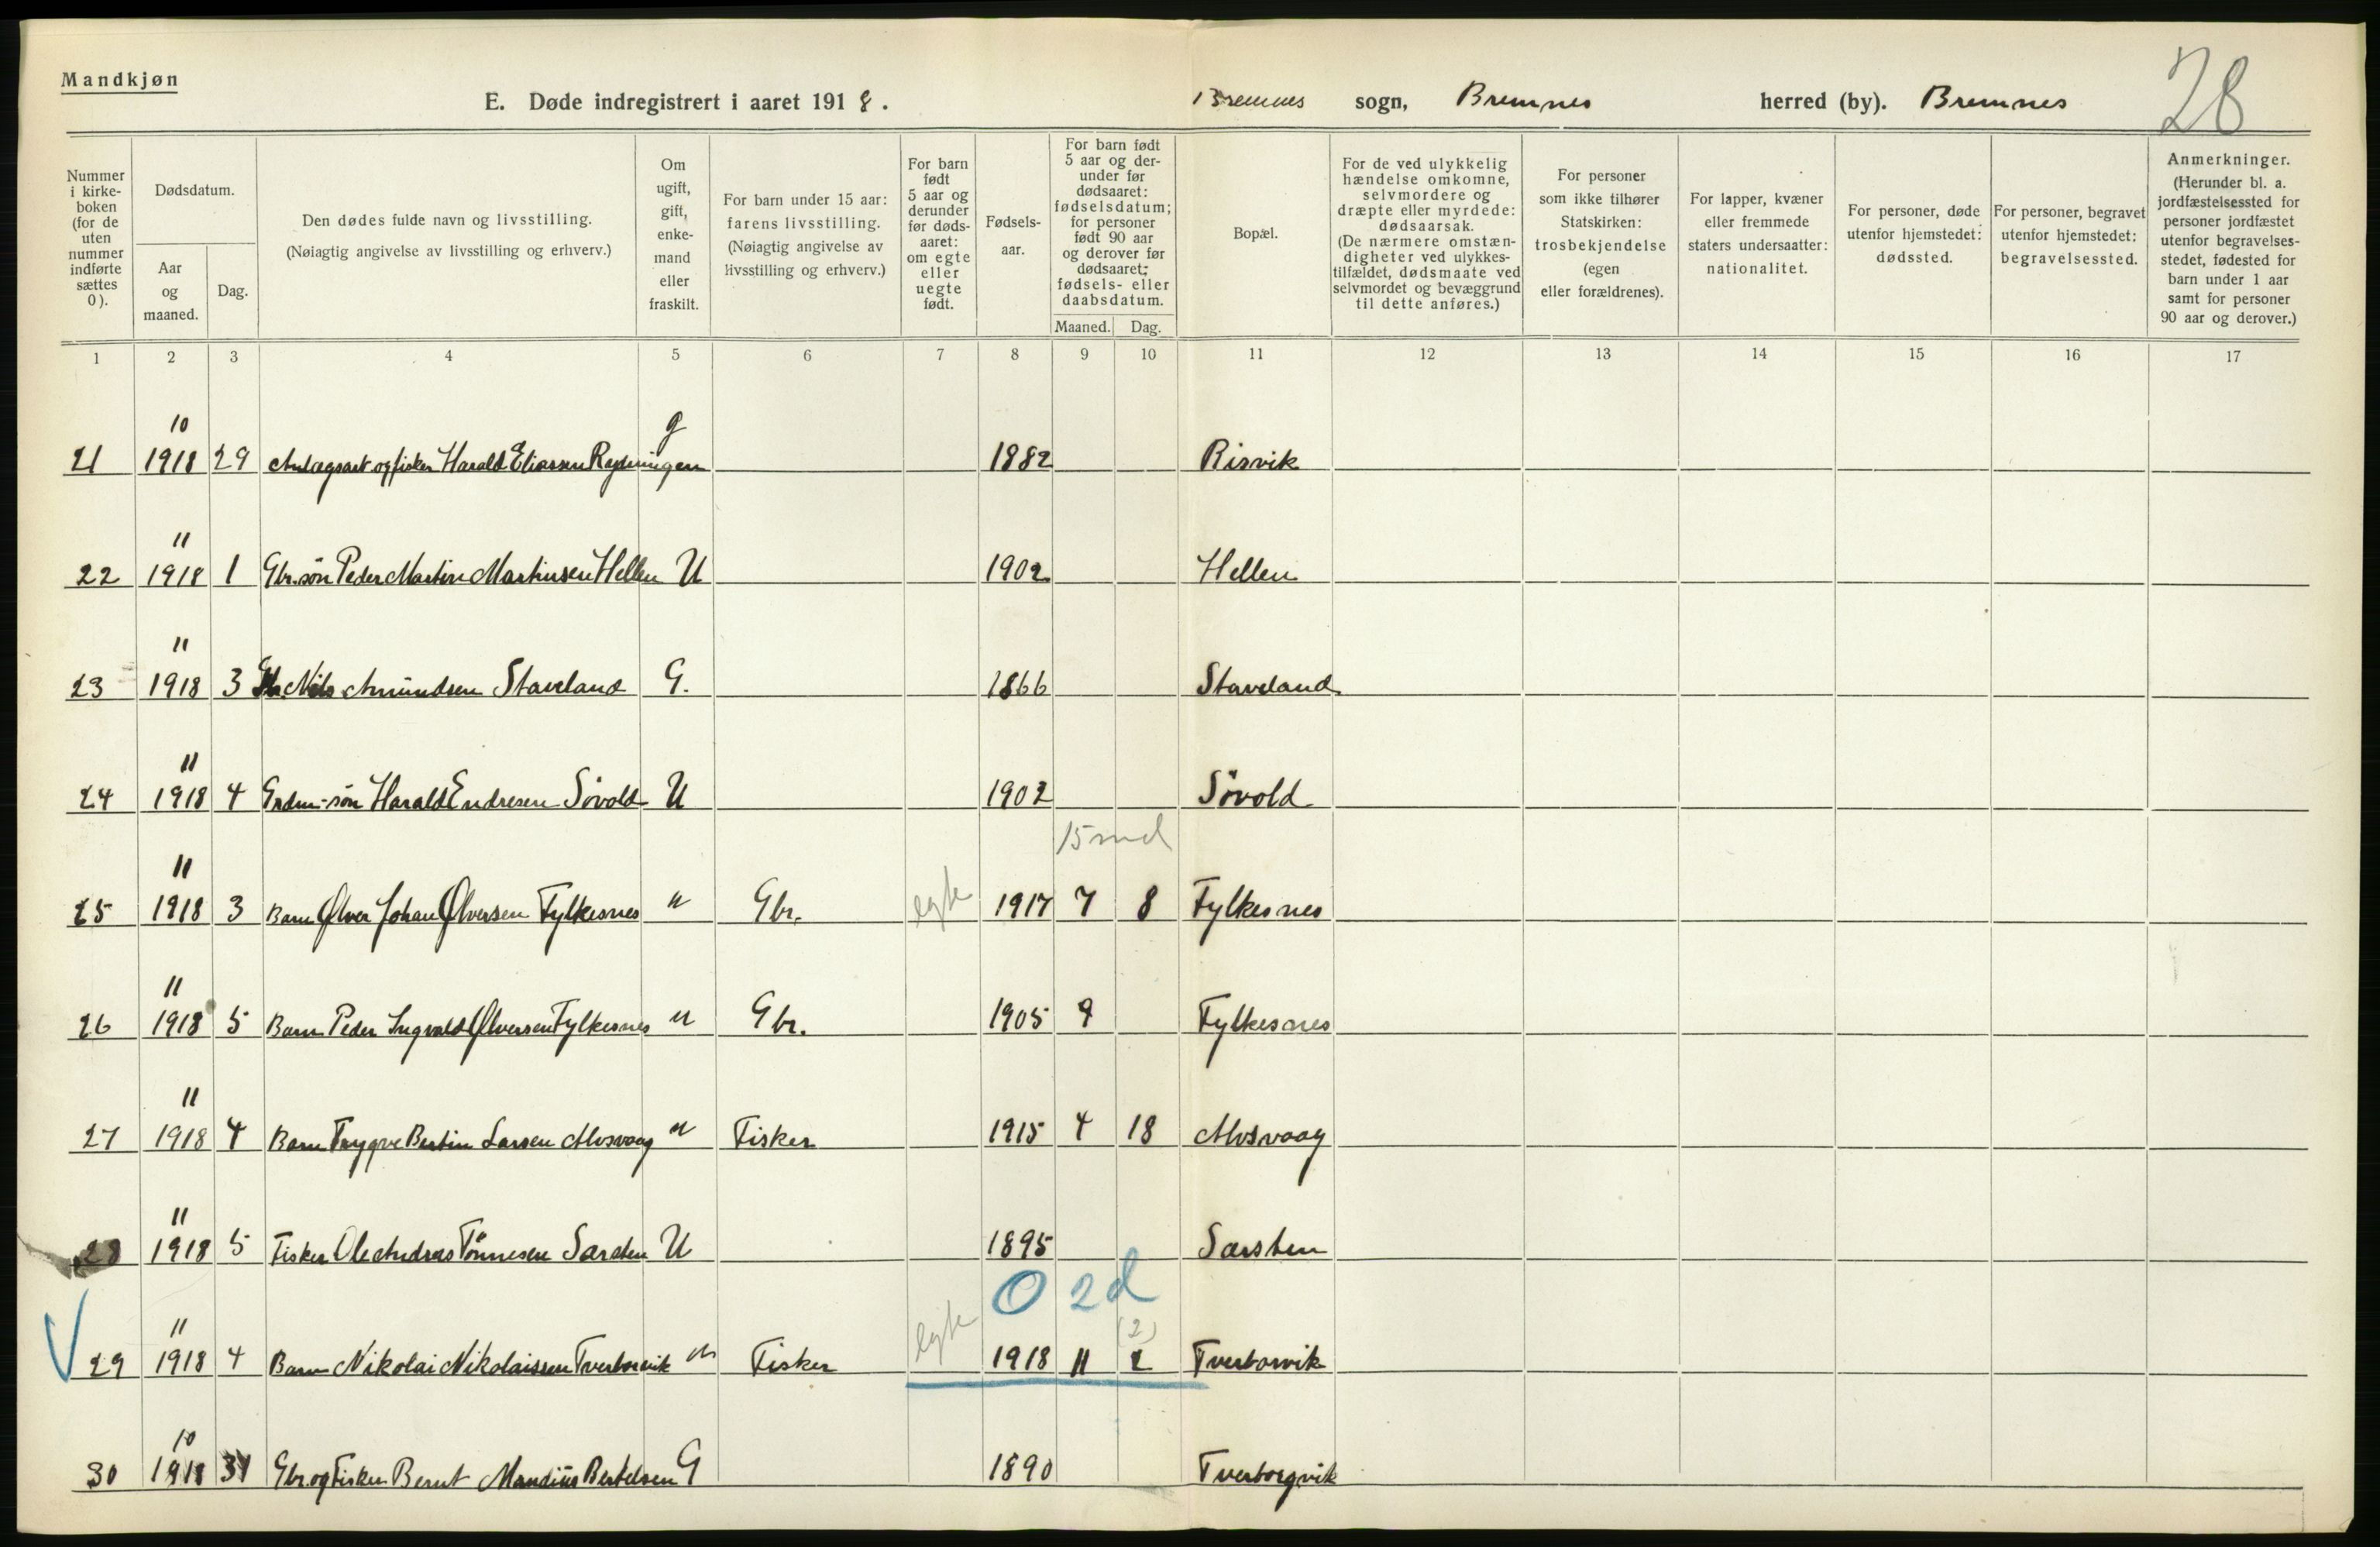 Mandkjøn
28
E. Døde indregistrert i aaret 1918. Bremnes sogn, Bremnes herred (by). Bremnes
Nummer i kirke-boken (for de uten nummer indførte sættes 0).
Dødsdatum.
Aar og maaned.
Dag.
Den dødes fulde navn og livsstilling.
(Nøiagtig angivelse av livsstilling og erhverv.)
Om ugift, gift, enke-mand eller fraskilt.
For barn under 15 aar: farens livsstilling.
(Nøiagtig angivelse av livsstilling og erhverv.)
For barn født 5 aar og derunder før døds-aaret: om egte eller uegte født.
Fødsels-aar.
For barn født 5 aar og der-under før dødsaaret: fødselsdatum; for personer født 90 aar og derover før dødsaaret: fødsels- eller daabsdatum.
Maaned. Dag.
Bopæl.
For de ved ulykkelig hændelse omkomne, selvmordere og dræpte eller myrdede: dødsaarsak.
(De nærmere omstæn-digheter ved ulykkes-tilfældet, dødsmaate ved selvmordet og bevæggrund til dette anføres.)
For personer som ikke tilhører Statskirken: trosbekjendelse (egen eller forældrenes).
For lapper, kvæner eller fremmede staters undersaatter: nationalitet.
For personer, døde utenfor hjemstedet: dødssted.
For personer, begravet utenfor hjemstedet: begravelsessted.
Anmerkninger.
(Herunder bl. a. jordfæstelsessted for personer jordfæstet utenfor begravelses-stedet, fødested for barn under 1 aar samt for personer 90 aar og derover.)
1 2 3 4 5 6 7 8 9 10 11 12 13 14 15 16 17
10 g
21 1918 29 Anlægsarb og fisker Harald Eliassen 1882 Risvik
11
22 1918 1 Gbr. søn Peder Martin Martinsen Hellen U 1902 Hellen
11
23 1918 3 Gbr Nils Amundsen Staveland G. 1866 Staveland
11
24 1918 4 Grdm-søn Harald Endresen Søvold U 1902 Søvold
15 md
11
25 1918 3 Barn Ølver Johan Ølversen Fylkesnes u Gbr. egte 1917 7 8 Fylkesnes
11
26 1918 5 Barn Peder Ingvald Ølversen Fylkesnes u Gbr. 1905 9 Fylkesnes
11
27 1918 4 Barn Trygve Bertin Larsen Alvsvaag u Fisker 1915 4 18 Alvsvaag
11
28 1918 5 Fisker Ole Andreas Tønnesen U 1895
0 2 d
11 (2)
29 1918 4 Barn Nikolai Nikolaissen Tverborvik u Fisker egte 1918 11 2 Tverborvik
10
30 1918 31 Gbr. og Fisker Bernt Mandius Bertelsen G 1890 Tverborgvik